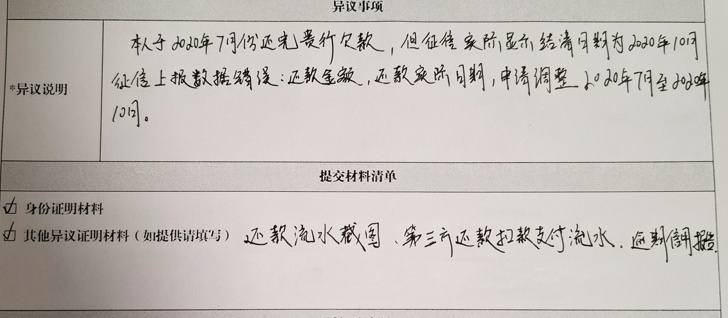 异议事项
本人于2020年7月份还完贵行欠款，但征信实际显示结清日期为2020年10月
征信上报数据错误：还款金额，还款实际日期，申请调整2020年7月至2020年
10月。
*异议说明
提交材料清单
☑ 身份证明材料
☑ 其他异议证明材料（如提供请填写） 还款流水截图、第三方还款扣款支付流水、逾期信用报告